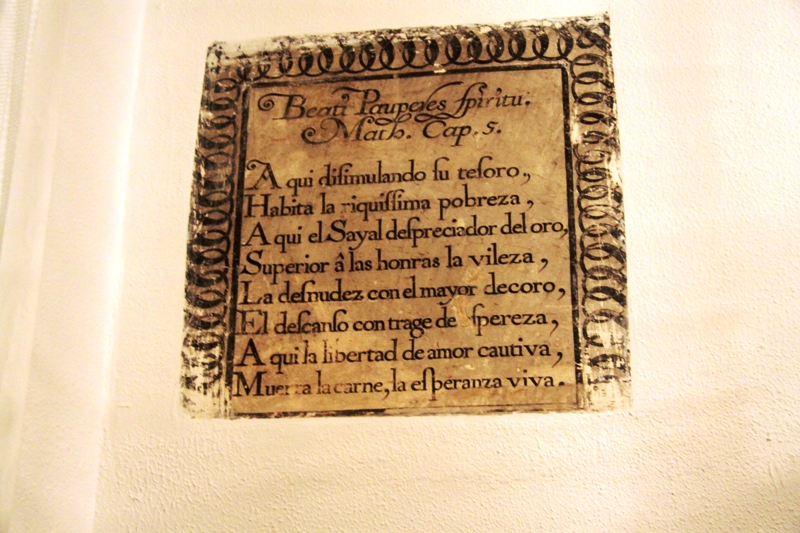 Beati Pauperes ſpiritu.
Math. Cap. 5.
Aqui diſimulando ſu teſoro,
Habita la riquiſſima pobreza,
Aqui el Sayal deſpreciador del oro,
Superior â las honras la vileza,
La deſnudez con el mayor decoro,
El deſcanſo con trage de ſpereza,
Aqui la libertad de amor cautiva,
Muerta la carne, la eſperanza viva.